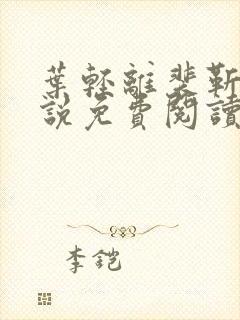 葉輕離裴靳
說免費閱讀
李鎧